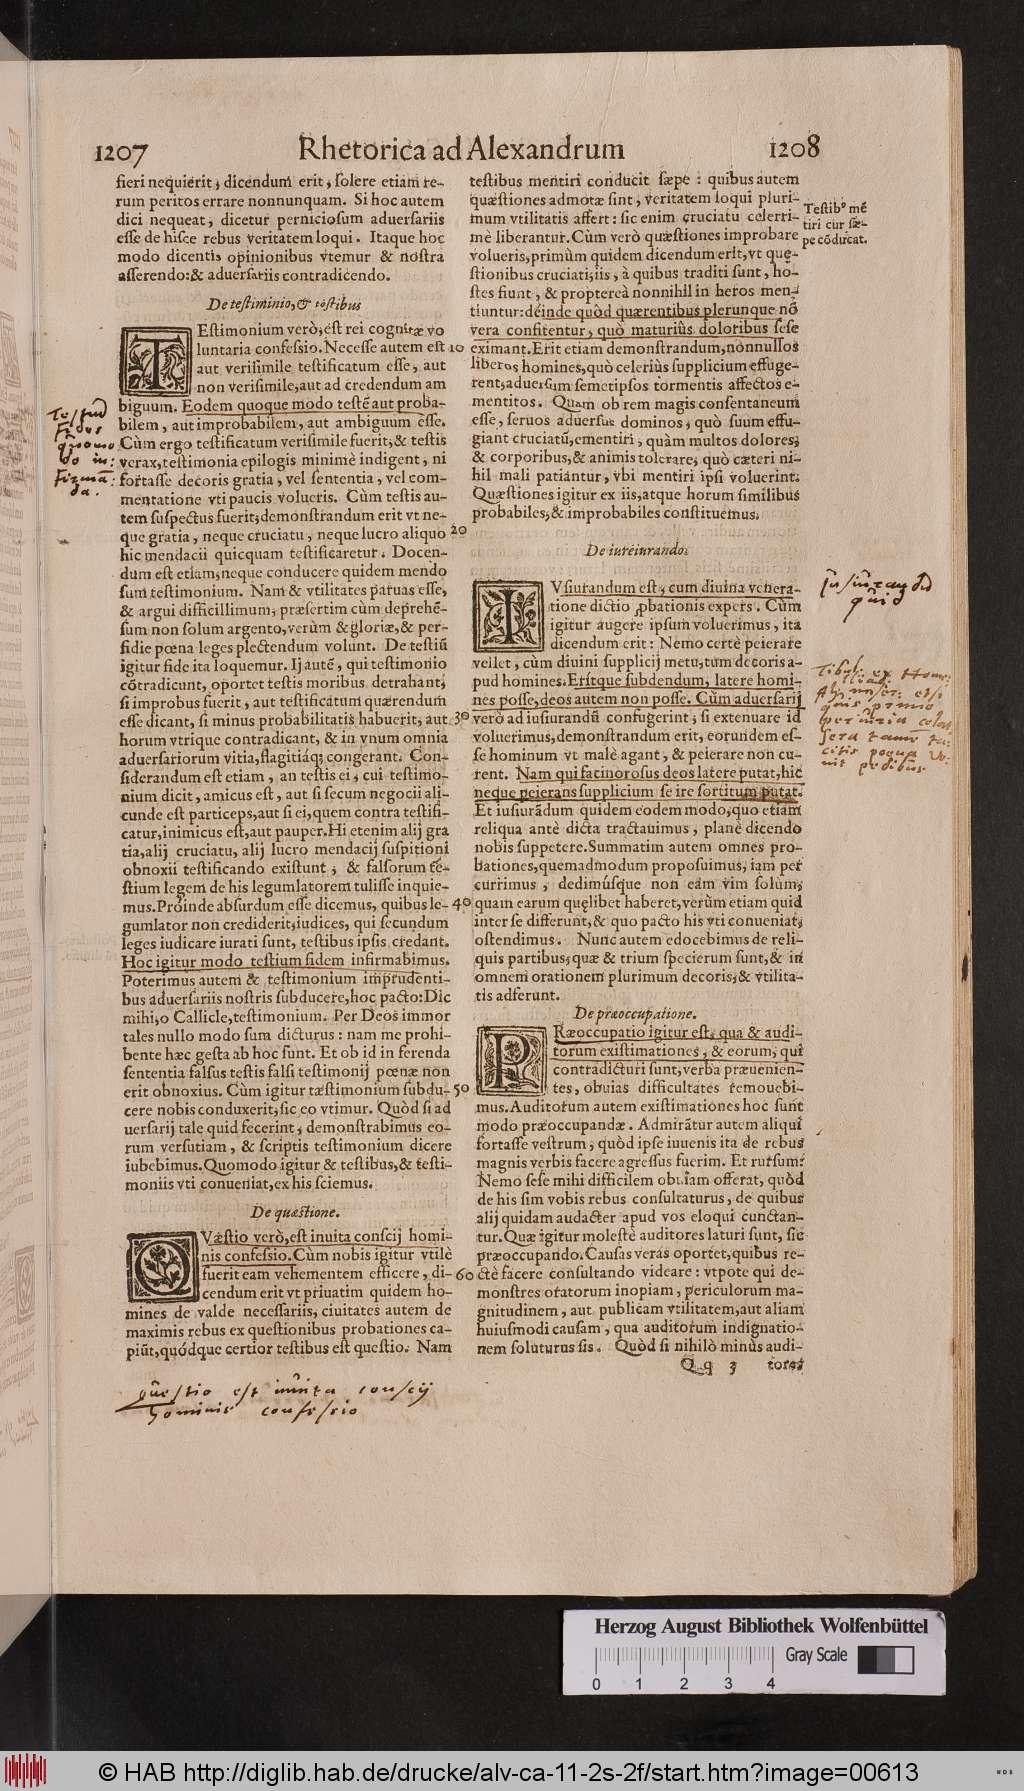 1207 Rhetorica ad Alexandrum 1208
fieri nequierit, dicendum erit, solere etiam re-
rum peritos errare nonnunquam. Si hoc autem
dici nequeat, dicetur perniciosum aduersariis
esse de hisce rebus veritatem loqui. Itaque hoc
modo dicentis opinionibus vtemur & nostra
asserendo: & aduersariis contradicendo.
De testiminio, & testibus
TEstimonium verò, est rei cognitæ vo
luntaria confessio. Necesse autem est 10
aut verisimile testificatum esse, aut
non verisimile, aut ad credendum am
biguum. Eodem quoque modo testē aut proba-
bilem, aut improbabilem, aut ambiguum esse.
Cùm ergo testificatum verisimile fuerit, & testis
verax, testimonia epilogis minimè indigent, ni
fortasse decoris gratia, vel sententia, vel com-
mentatione vti paucis volueris. Cùm testis au-
tem suspectus fuerit, demonstrandum erit vt ne-
que gratia, neque cruciatu, neque lucro aliquo 20
hic mendacii quicquam testificaretur. Docen-
dum est etiam, neque conducere quidem mendo
sum testimonium. Nam & vtilitates paruas esse,
& argui difficillimum, præsertim cùm deprehē-
sum non solum argento, verùm & gloriæ, & per-
fidie pœna leges plectendum volunt. De testiū
igitur fide ita loquemur. Ij autē, qui testimonio
cōtradicunt, oportet testis moribus detrahant,
si improbus fuerit, aut testificatum quærendum
esse dicant, si minus probabilitatis habuerit, aut 30
horum vtrique contradicant, & in vnum omnia
aduersariorum vitia, flagitiáq; congerant. Con-
siderandum est etiam, an testis ei, cui testimo-
nium dicit, amicus est, aut si secum negocii ali-
cunde est particeps, aut si ei, quem contra testifi-
catur, inimicus est, aut pauper. Hi etenim alij gra
tia, alij cruciatu, alij lucro mendacij suspitioni
obnoxii testificando existunt, & falsorum te-
stium legem de his legumlatorem tulisse inquie-
mus. Proinde absurdum esse dicemus, quibus le- 40
gumlator non crediderit, iudices, qui secundum
leges iudicare iurati sunt, testibus ipsis credant.
Hoc igitur modo testium fidem infirmabimus.
Poterimus autem & testimonium imprudenti-
bus aduersariis nostris subducere, hoc pacto: Dic
mihi, o Callicle, testimonium. Per Deos immor
tales nullo modo sum dicturus: nam me prohi-
bente hæc gesta ab hoc sunt. Et ob id in ferenda
sententia falsus testis falsi testimonij pœnæ non
erit obnoxius. Cùm igitur tæstimonium subdu- 50
cere nobis conduxerit, sic eo vtimur. Quòd si ad
uersarij tale quid fecerint, demonstrabimus eo-
rum versutiam, & scriptis testimonium dicere
iubebimus. Quomodo igitur & testibus, & testi-
moniis vti conueniat, ex his sciemus.
De quæstione.
QVæstio verò, est inuita conscij homi-
nis confessio. Cùm nobis igitur vtilè
fuerit eam vehementem efficere, di- 60
cendum erit vt priuatim quidem ho-
mines de valde necessariis, ciuitates autem de
maximis rebus ex questionibus probationes ca-
piūt, quódque certior testibus est questio. Nam
quæstio est inuita conscij
hominis confessio
testibus mentiri conducit sæpe: quibus autem
quæstiones admotæ sint, veritatem loqui pluri-
mum vtilitatis affert: sic enim cruciatu celerri-
mè liberantur. Cùm verò quæstiones improbare
volueris, primùm quidem dicendum erit, vt quę-
stionibus cruciati, iis, à quibus traditi sunt, ho-
stes fiunt, & proptereà nonnihil in heros men-
tiuntur: déinde quòd quærentibus plerunque nō
vera confitentur, quò maturiùs doloribus sese
eximant. Erit etiam demonstrandum, nonnullos
liberos homines, quò celeriùs supplicium effuge-
rent, aduersum semetipsos tormentis affectos e-
mentitos. Quam ob rem magis consentaneum
esse, seruos aduersus dominos, quò suum effu-
giant cruciatū, ementiri, quàm multos dolores,
& corporibus, & animis tolerare, quò cæteri ni-
hil mali patiantur, vbi mentiri ipsi voluerint.
Quæstiones igitur ex iis, atque horum similibus
probabiles, & improbabiles constituemus.
De iureiurando.
IVsiurandum est, cum diuina venera-
tione dictio ꝓbationis expers. Cùm
igitur augere ipsum voluerimus, ita
dicendum erit: Nemo certè peierare
vellet, cùm diuini supplicij metu, tum decoris a-
pud homines. Erítque subdendum, latere homi-
nes posse, deos autem non posse. Cùm aduersarij
verò ad iusiurandū confugerint, si extenuare id
voluerimus, demonstrandum erit, eorundem es-
se hominum vt malè agant, & peierare non cu-
rent. Nam qui facinorosus deos latere putat, hic
neque peierans supplicium se ire sortitum putat.
Et iusiurādum quidem eodem modo, quo etiam
reliqua antè dicta tractauimus, planè dicendo
nobis suppetere. Summatim autem omnes pro-
bationes, quemadmodum proposuimus, iam per
currimus, dedimúsque non eam vim solùm,
quam earum quęlibet haberet, verùm etiam quid
inter se differunt, & quo pacto his vti conueniat,
ostendimus. Nunc autem edocebimus de reli-
quis partibus, quæ & trium specierum sunt, & in
omnem orationem plurimum decoris, & vtilita-
tis adferunt.
De præoccupatione.
PRæoccupatio igitur est, qua & audi-
torum existimationes, & eorum, qui
contradicturi sunt, verba præuenien-
tes, obuias difficultates remouebi-
mus. Auditorum autem existimationes hoc sunt
modo præoccupandæ. Admirātur autem aliqui
fortasse vestrum, quòd ipse iuuenis ita de rebus
magnis verbis facere agressus fuerim. Et rursum:
Nemo sese mihi difficilem obuiam offerat, quòd
de his sim vobis rebus consultaturus, de quibus
alij quidam audacter apud vos eloqui cunctan-
tur. Quæ igitur molestè auditores laturi sunt, sic
præoccupando. Causas veras oportet, quibus re-
ctè facere consultando videare: vtpote qui de-
monstres oratorum inopiam, periculorum ma-
gnitudinem, aut publicam vtilitatem, aut aliam
huiusmodi causam, qua auditorum indignatio-
nem soluturus sis. Quòd si nihilò minùs audi-
Qq 3 tores
Testib⁹ mē
tiri cur sæ-
pe cōducat.
Herzog August Bibliothek Wolfenbüttel
Gray Scale
0 1 2 3 4
© HAB http://diglib.hab.de/drucke/alv-ca-11-2s-2f/start.htm?image=00613